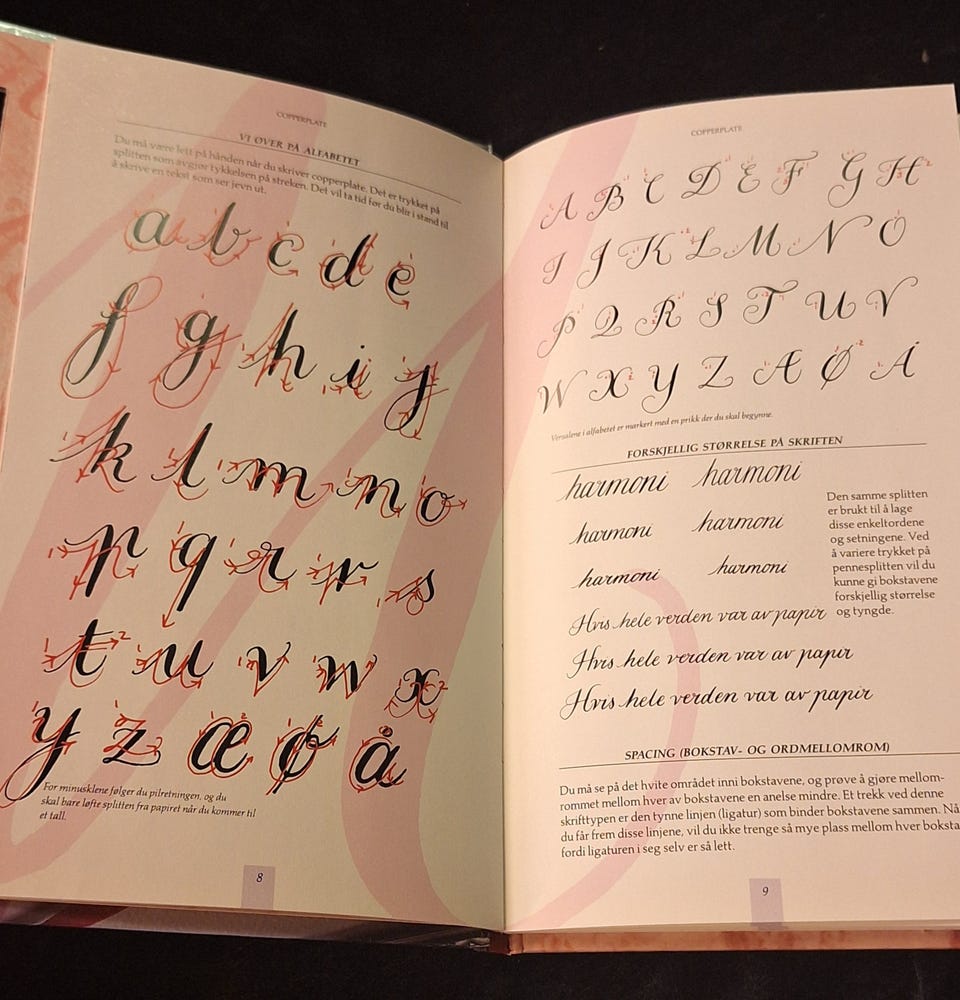 COPPERPLATE
VI ØVER PÅ ALFABETET
Du må være lett på hånden når du skriver copperplate. Det er trykket på
splitten som avgjør tykkelsen på streken. Det vil ta tid før du blir i stand til
å skrive en tekst som ser jevn ut.
a b c d e
f g h i j
k l m n o
p q r r s
t u v w x
y z æ ø å
For minusklene følger du pilretningen, og du
skal bare løfte splitten fra papiret når du kommer til
et tall.
8
COPPERPLATE
A B C D E F G H
I J K L M N O
P Q R S T U V
W X Y Z Æ Ø Å
Versalene i alfabetet er markert med en prikk der du skal begynne.
FORSKJELLIG STØRRELSE PÅ SKRIFTEN
harmoni harmoni
harmoni harmoni
harmoni harmoni
Hvis hele verden var av papir
Hvis hele verden var av papir
Hvis hele verden var av papir
Den samme splitten
er brukt til å lage
disse enkeltordene
og setningene. Ved
å variere trykket på
pennesplitten vil du
kunne gi bokstavene
forskjellig størrelse
og tyngde.
SPACING (BOKSTAV- OG ORDMELLOMROM)
Du må se på det hvite området inni bokstavene, og prøve å gjøre mellom-
rommet mellom hver av bokstavene en anelse mindre. Et trekk ved denne
skrifttypen er den tynne linjen (ligatur) som binder bokstavene sammen. Nå
du får frem disse linjene, vil du ikke trenge så mye plass mellom hver boksta
fordi ligaturen i seg selv er så lett.
9